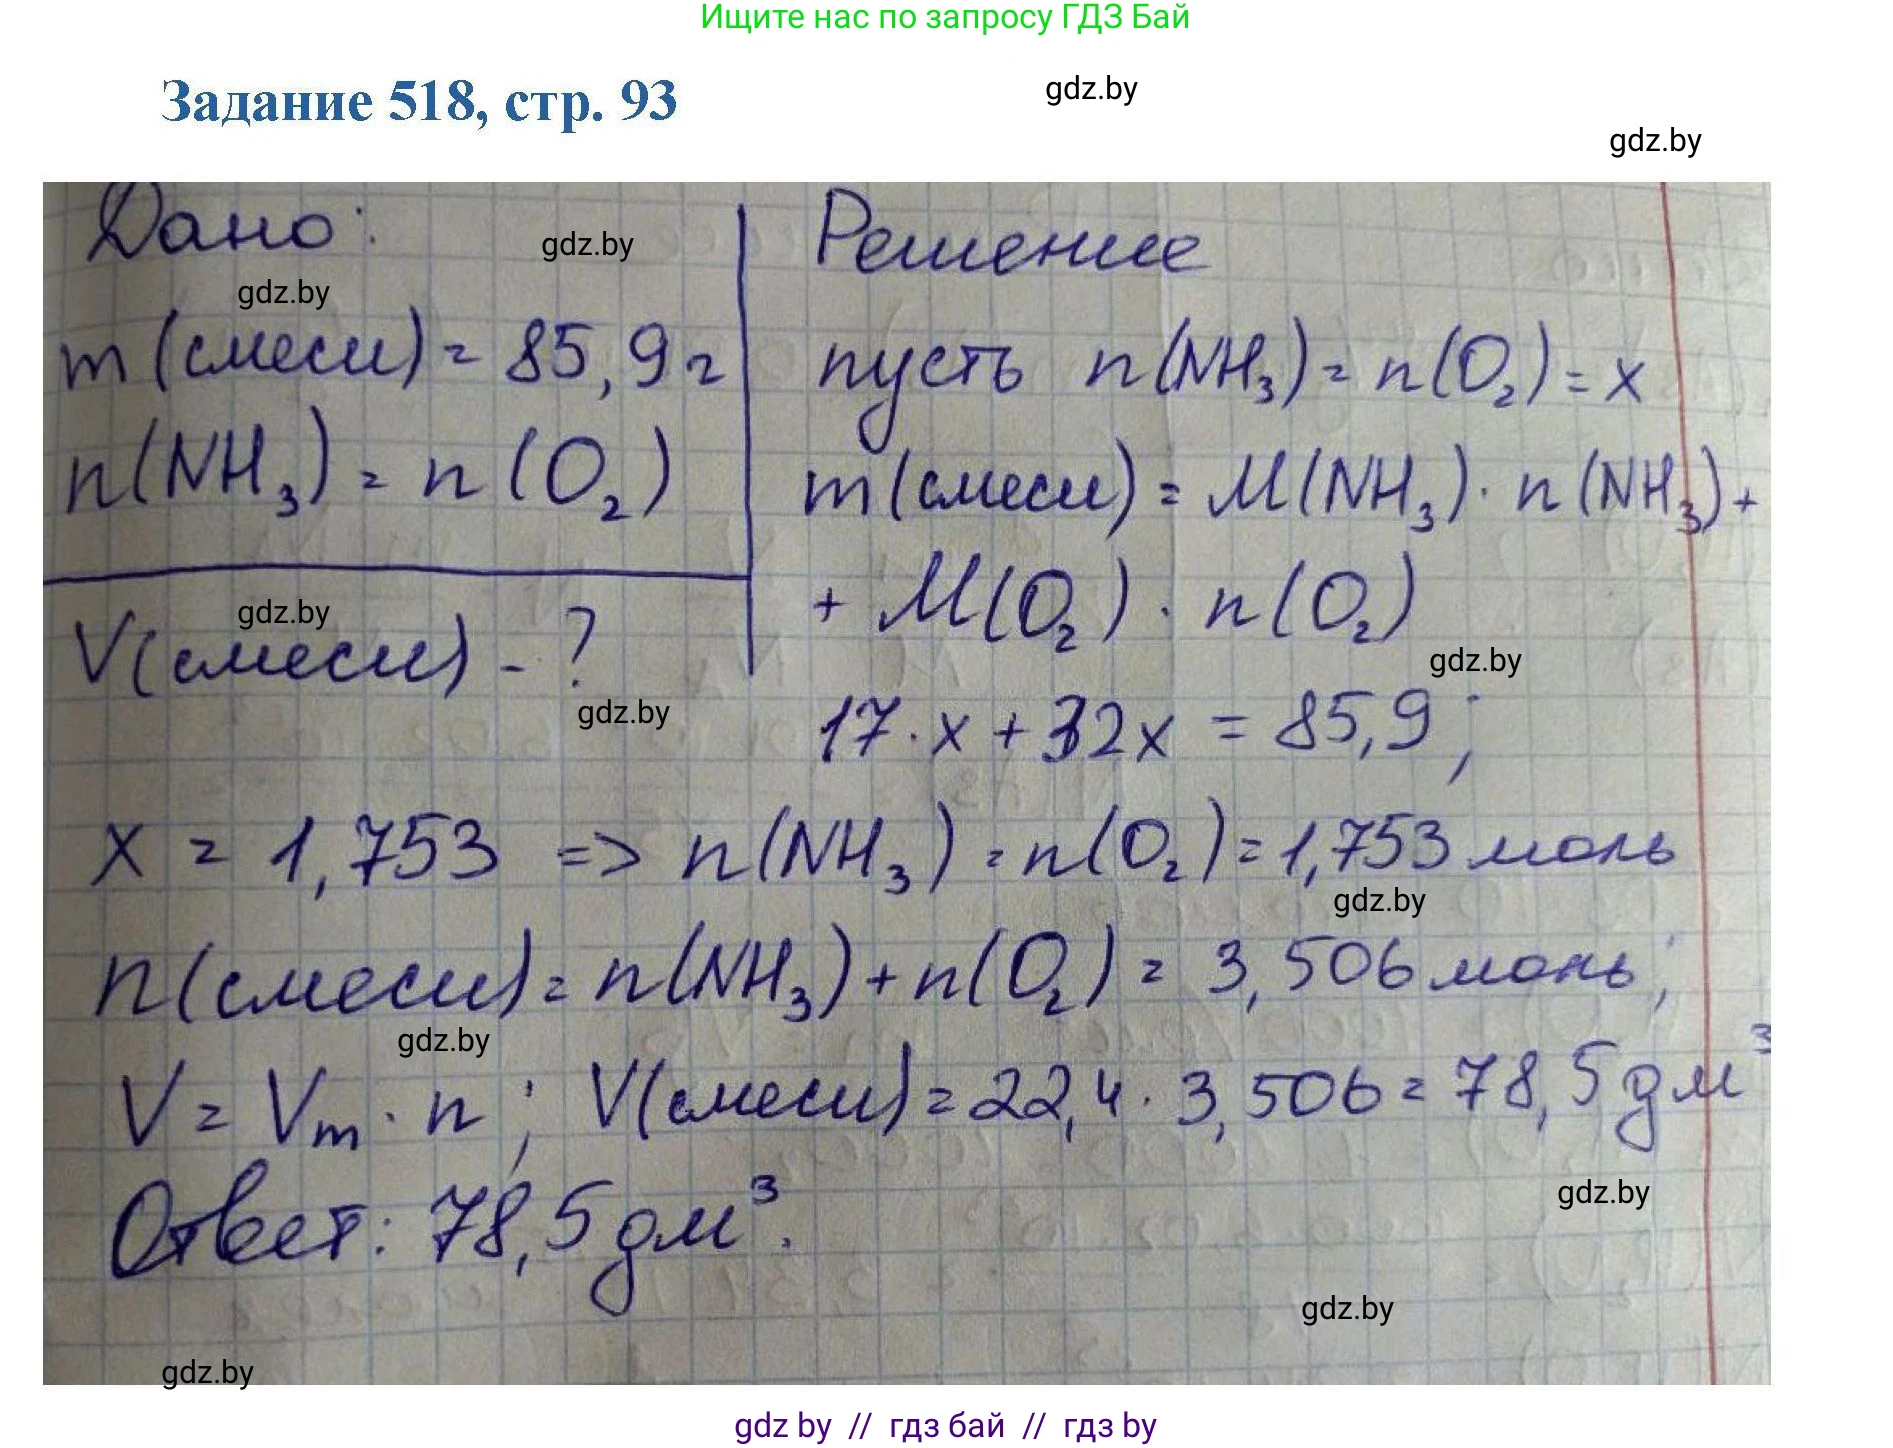 Ищите нас по запросу ГДЗ Бай
Задание 518, стр. 93
gdz.by
gdz.by
Дано:
gdz.by
gdz.by
m(смеси) = 85,9 г
n(NH₃) = n(O₂)
V(смеси) - ?
gdz.by
gdz.by
Решение
пусть n(NH₃) = n(O₂) = x
m(смеси) = M(NH₃) · n(NH₃) +
+ M(O₂) · n(O₂)
gdz.by
17 · x + 32x = 85,9;
x = 1,753 => n(NH₃) = n(O₂) = 1,753 моль
gdz.by
n(смеси) = n(NH₃) + n(O₂) = 3,506 моль;
gdz.by
V = Vm · n; V(смеси) = 22,4 · 3,506 = 78,5 дм³
gdz.by
Ответ: 78,5 дм³.
gdz.by
gdz.by
gdz by // гдз бай // гдз by